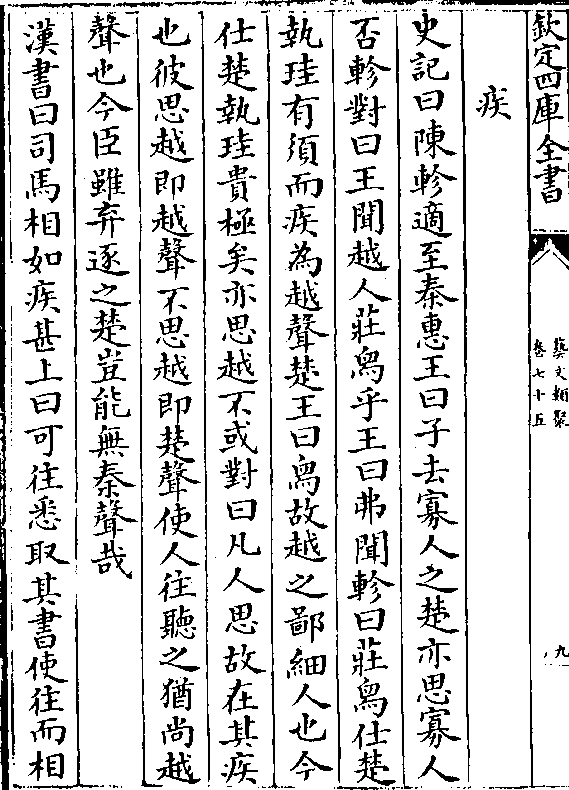 欽定四庫全書
藝文類聚
卷七十五
九
疾
史記曰陳軫適至秦惠王曰子去寡人之楚亦思寡人
否軫對曰王聞越人莊舃乎王曰弗聞軫曰莊舃仕楚
執珪有須而疾為越聲楚王曰舃故越之鄙細人也今
仕楚執珪貴極矣亦思越不或對曰凡人思故在其疾
也彼思越即越聲不思越即楚聲使人往聽之猶尚越
聲也今臣雖弃逐之楚豈能無秦聲哉
漢書曰司馬相如疾甚上曰可往悉取其書使往而相